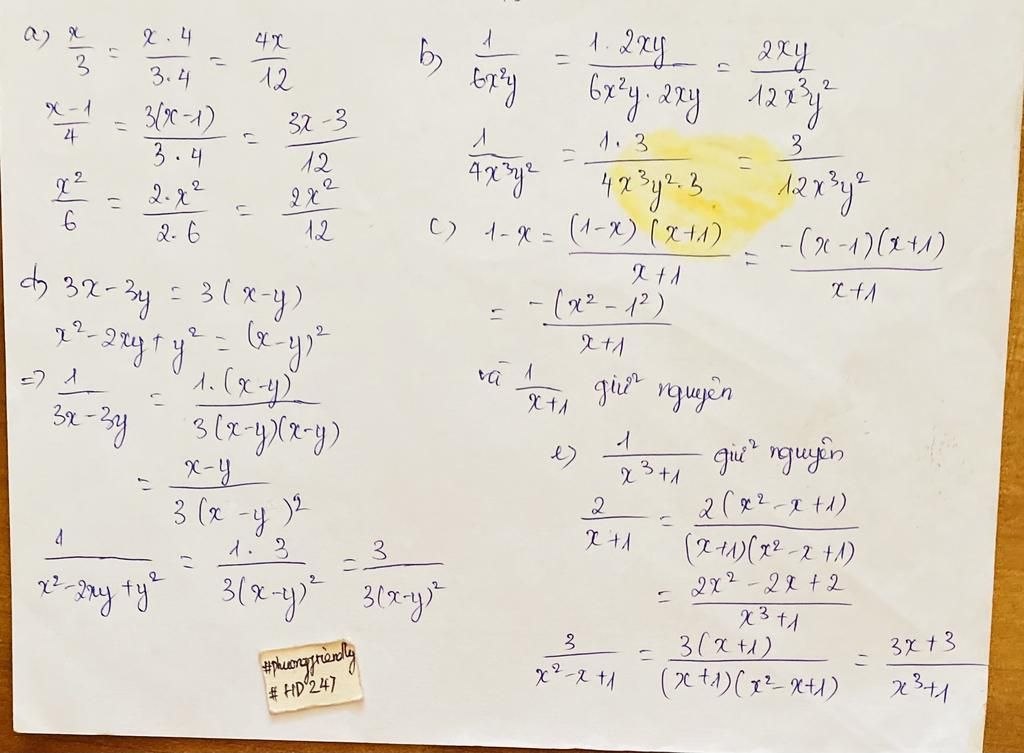 a) x/3 = x . 4/3 . 4 = 4x/12
x-1/4 = 3(x-1)/3 . 4 = 3x-3/12
x²/6 = 2 . x²/2 . 6 = 2x²/12
b) 1/6x²y = 1 . 2xy/6x²y . 2xy = 2xy/12x³y²
1/4x³y² = 1 . 3/4x³y² . 3 = 3/12x³y²
c) 1-x = (1-x)(x+1)/x+1 = -(x-1)(x+1)/x+1
= -(x²-1²)/x+1
và 1/x+1 giữ nguyên
d) 3x-3y = 3(x-y)
x²-2xy+y² = (x-y)²
=> 1/3x-3y = 1.(x-y)/3(x-y)(x-y)
= x-y/3(x-y)²
1/x²-2xy+y² = 1 . 3/3(x-y)² = 3/3(x-y)²
e) 1/x³+1 giữ nguyên
2/x+1 = 2(x²-x+1)/(x+1)(x²-x+1)
= 2x²-2x+2/x³+1
3/x²-x+1 = 3(x+1)/(x+1)(x²-x+1) = 3x+3/x³+1
#phuongfriendly
#HD247